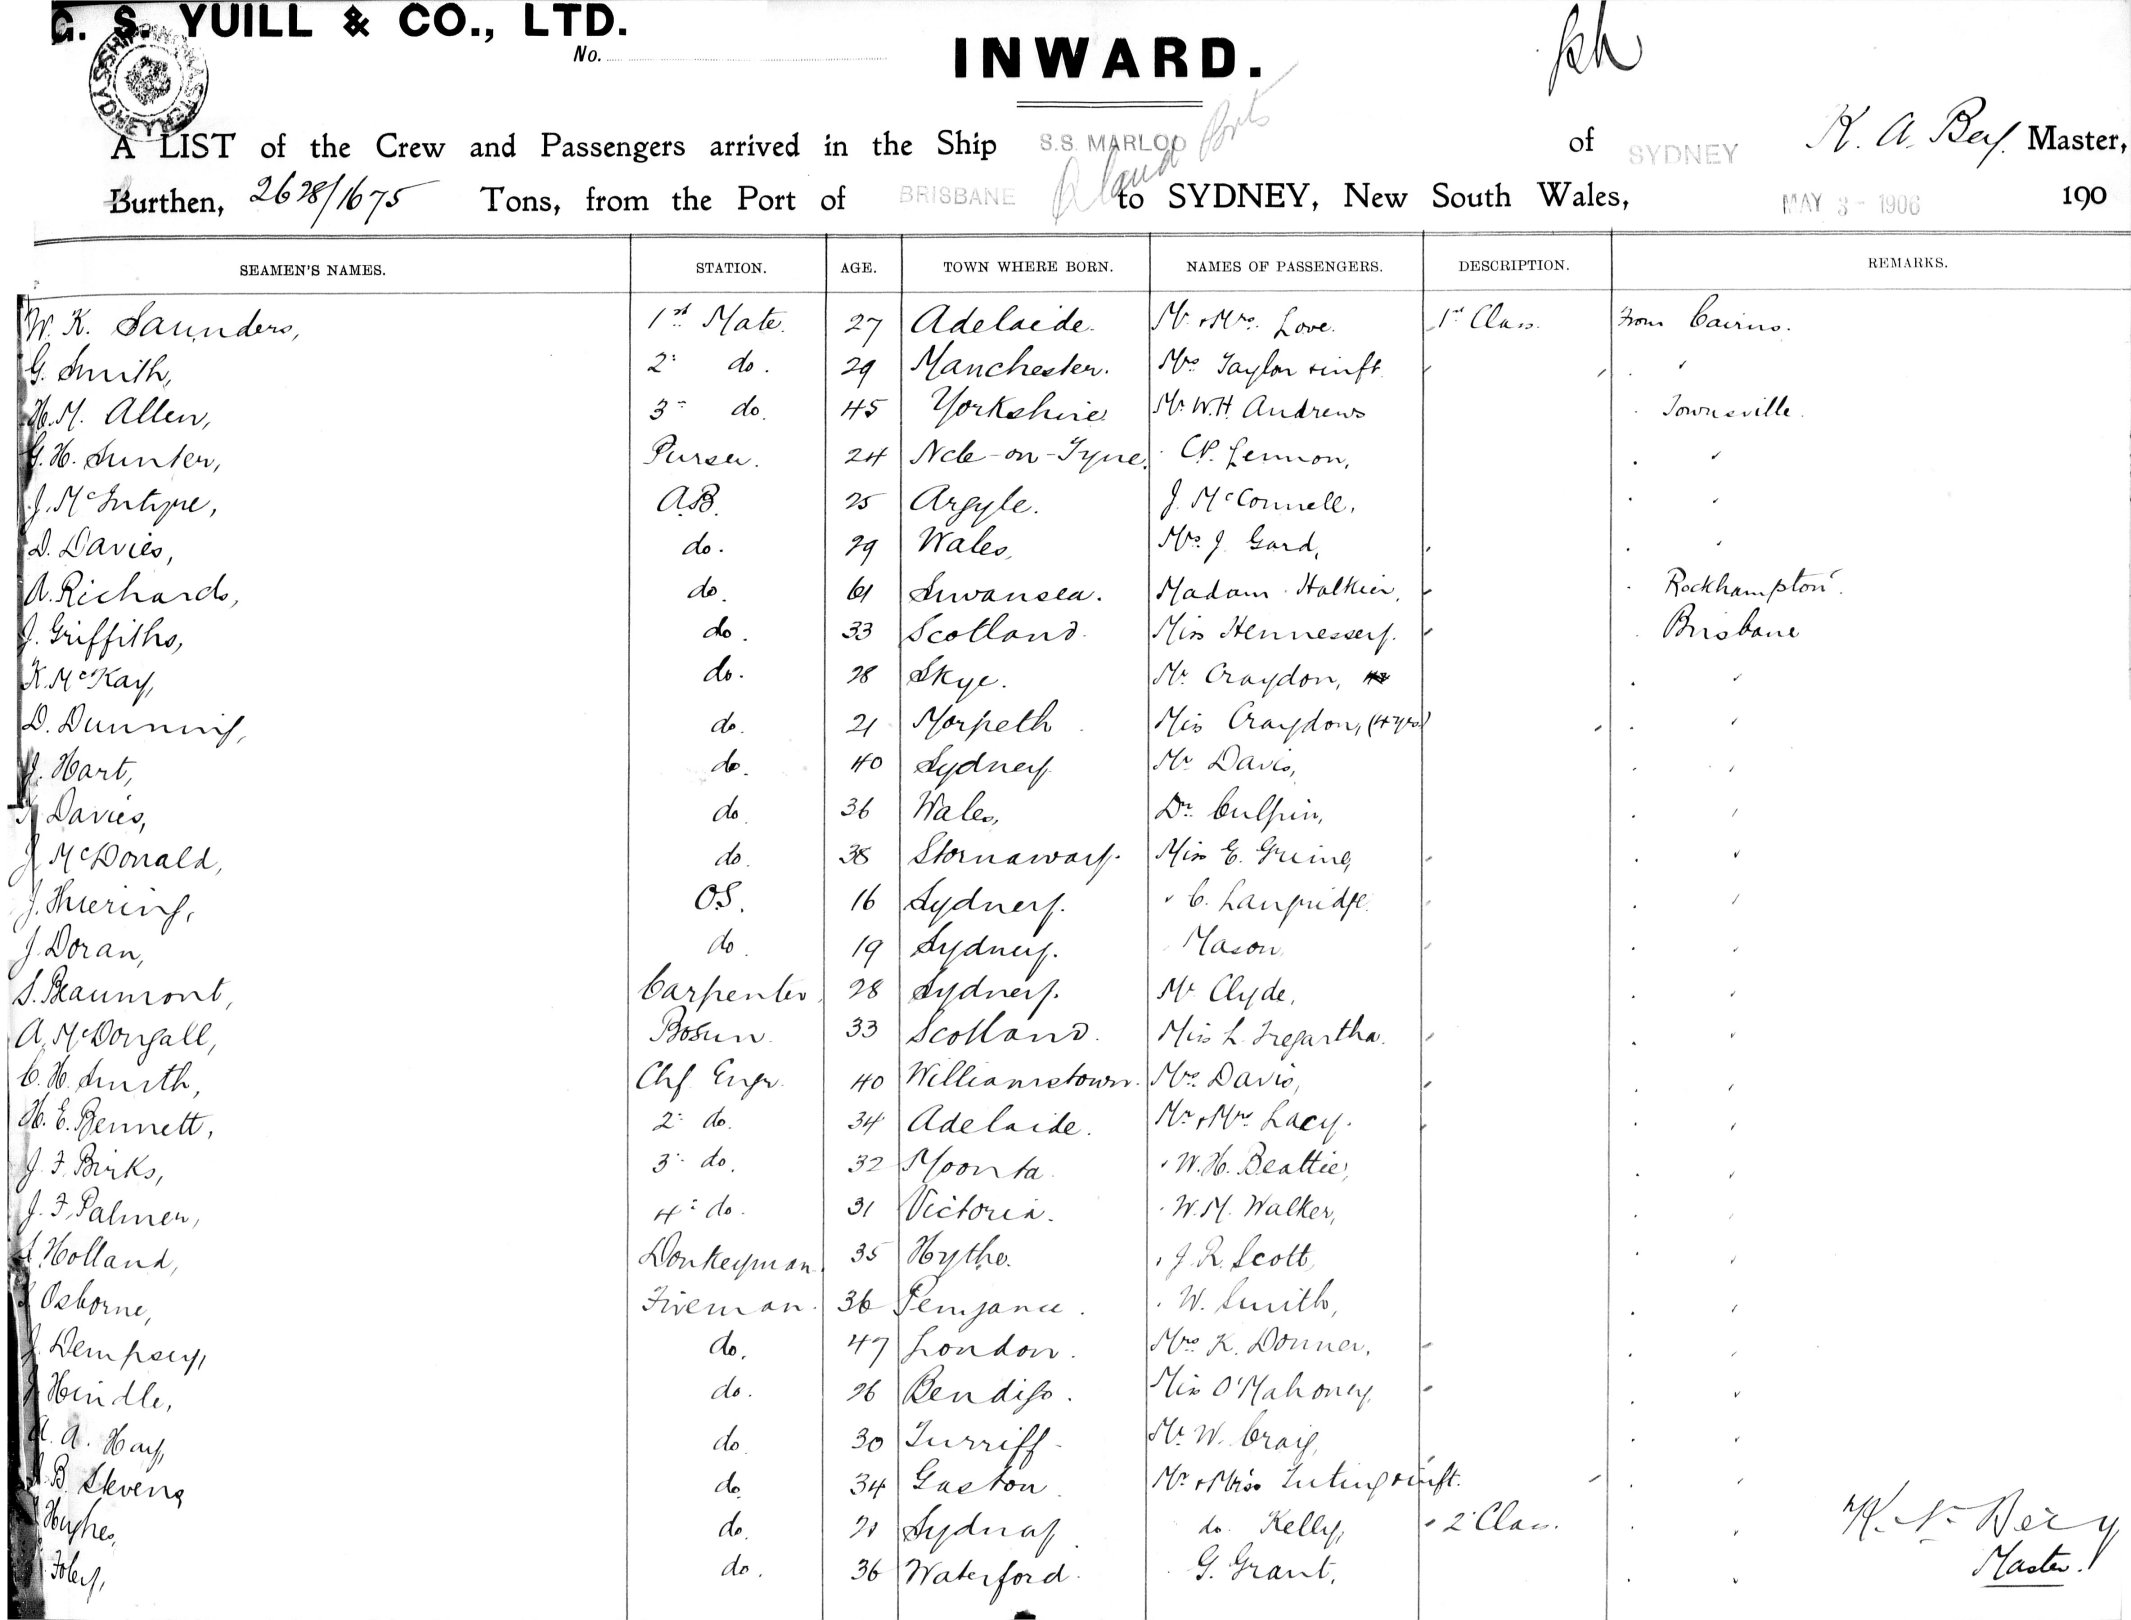 G. S. YUILL & CO., LTD.
No.
INWARD.
A LIST of the Crew and Passengers arrived in the Ship S.S. MARLOO of SYDNEY Master,
Burthen, 2628/1675 Tons, from the Port of BRISBANE to SYDNEY, New South Wales, MAY 3 - 1906 190
SEAMEN'S NAMES. STATION. AGE. TOWN WHERE BORN. NAMES OF PASSENGERS. DESCRIPTION. REMARKS.
W. K. Saunders, 1st Mate. 27 Adelaide. Mr & Mrs. Love. 1st Class. From Cairns.
G. Smith, 2" do. 29 Manchester. Mrs Taylor & inft. "
H. M. Allen, 3" do. 45 Yorkshire Mr W. H. Andrews Townsville.
G. H. Sunter, Purser. 24 Ncle-on-Tyne. Lennon, "
J. McIntyre, A.B. 25 Argyle. J. McConnell, "
D. Davies, do. 29 Wales, Mrs. J. Gard, "
A. Richards, do. 61 Swansea. Madam Halkier, Rockhampton.
J. Griffiths, do. 33 Scotland. Miss Hennessey. Brisbane
K. McKay, do. 28 Skye. Mr. Craydon, "
D. Dunning, do. 21 Morpeth Miss Craydon, (4 yrs) "
J. Hart, do. 40 Sydney Mr Davis, "
Davies, do. 36 Wales, Dr. Culpin, "
J McDonald, do. 38 Stornaway. Miss E. "
J. Thiering, O.S. 16 Sydney. " C. Langridge. "
J. Doran, do. 19 Sydney. Mason, "
S. Beaumont, Carpenter 28 Sydney. Mr Clyde, "
A. McDougall, Bosun. 33 Scotland. Miss L. Tregartha. "
C. H. Smith, Chf. Engr. 40 Williamstown. Mrs. Davis, "
H. E. Bennett, 2" do. 34 Adelaide. Mr & Mrs Lacy. "
J. F. Birks, 3" do. 32 Moonta " W. H. Beattie, "
J. F. Palmer, 4" do. 31 Victoria. " W. M. Walker, "
Holland, Donkeyman. 35 Hythe. " J. R. Scott, "
Osborne, Fireman. 36 Penzance. " W. Smith, "
J. Dempsey, do. 47 London. Mrs K. Donner, "
J Hindle, do. 26 Bendigo. Miss O'Mahoney, "
A. Hay, do. 30 Turriff. Mr. W. Craig, "
B. Stevens do. 34 Gaston Mr & inft. "
Hughes, do. Sydney do. Kelly, 2" Class. "
Foley, do. 36 Waterford. G. Grant, "
Master.